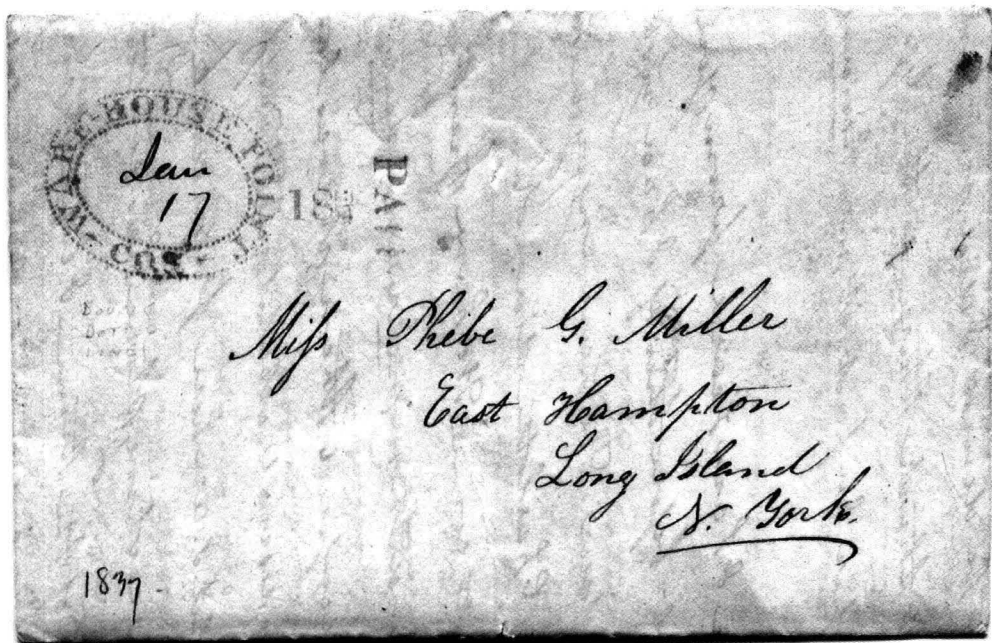 WAREHOUSE POINT
Jan
17
18¾
PAID
Miss Phebe G. Miller
East Hampton
Long Island
N. York.
1837.